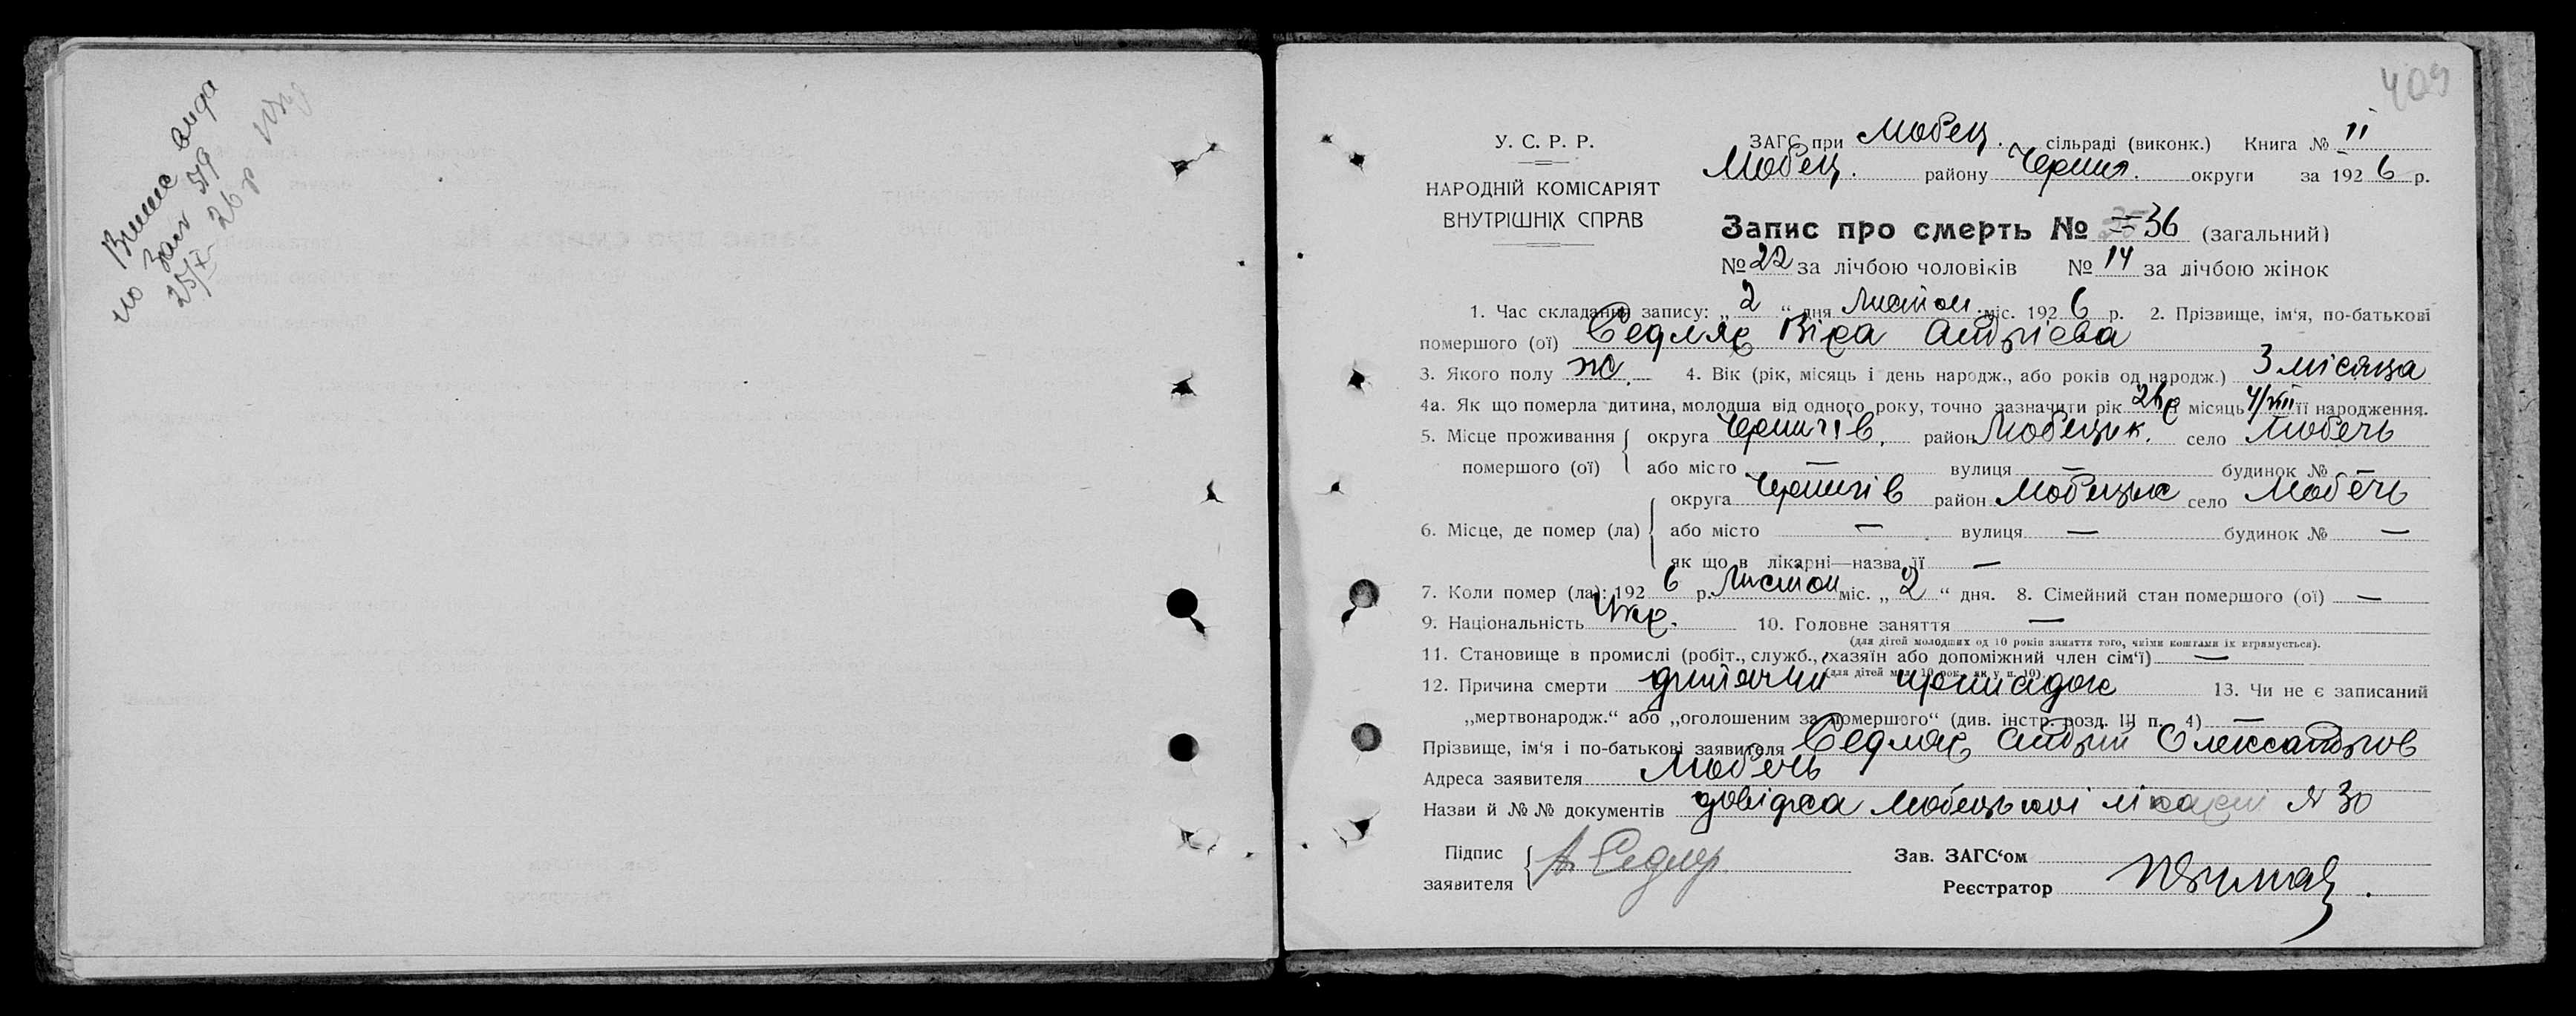 Випис вида
по заяв 579
25/X 26 р
409
У. С. Р. Р.
НАРОДНІЙ КОМІСАРІЯТ
ВНУТРІШНІХ СПРАВ
ЗАГС при Любец. сільраді (виконк.) Книга № II
Любец. району Черниг. округи за 1926 р.
Запис про смерть № 36 (загальний)
№ 22 за лічбою чоловіків № 14 за лічбою жінок
1. Час складання запису: „ 2 “ дня Листоп. міс. 1926 р. 2. Прізвище, ім‘я, по-батькові
помершого (ої) Седляр Віра Андрієва
3. Якого полу ж. 4. Вік (рік, місяць і день народж., або років од народж.) 3 місяца
4а. Як що померла дитина, молодша від одного року, точно зазначити рік 26 р місяць 4/VIII її народження.
5. Місце проживання помершого (ої) { округа Чернигів. район Любецьк. село Любечь
або місто — вулиця — будинок № —
6. Місце, де помер (ла) { округа Чернигів район Любецьк село Любечь
або місто — вулиця — будинок № —
як що в лікарні—назва її —
7. Коли помер (ла): 1926 р. Листоп міс. „ 2 “ дня. 8. Сімейний стан помершого (ої) —
9. Національність Укр. 10. Головне заняття —
(для дітей молодших од 10 років заняття того, чиїми коштами їх втримується).
11. Становище в промислі (робіт., служб., хазяїн або допоміжний член сім‘ї) —
(для дітей мол. 10 рок. як у п. 10)
12. Причина смерти дитячий припадок 13. Чи не є записаний
„мертвонародж.“ або „оголошеним за помершого“ (див. інстр. розд. III п. 4) —
Прізвище, ім‘я і по-батькові заявителя Седляр Андрій Олександров
Адреса заявителя Любечь
Назви й №№ документів довідка Любецької лікарні № 30
Підпис заявителя { А. Седляр
Зав. ЗАГС‘ом
Реєстратор